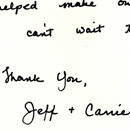 helped make ou
can't wait t
Thank You,
Jeff + Carrie